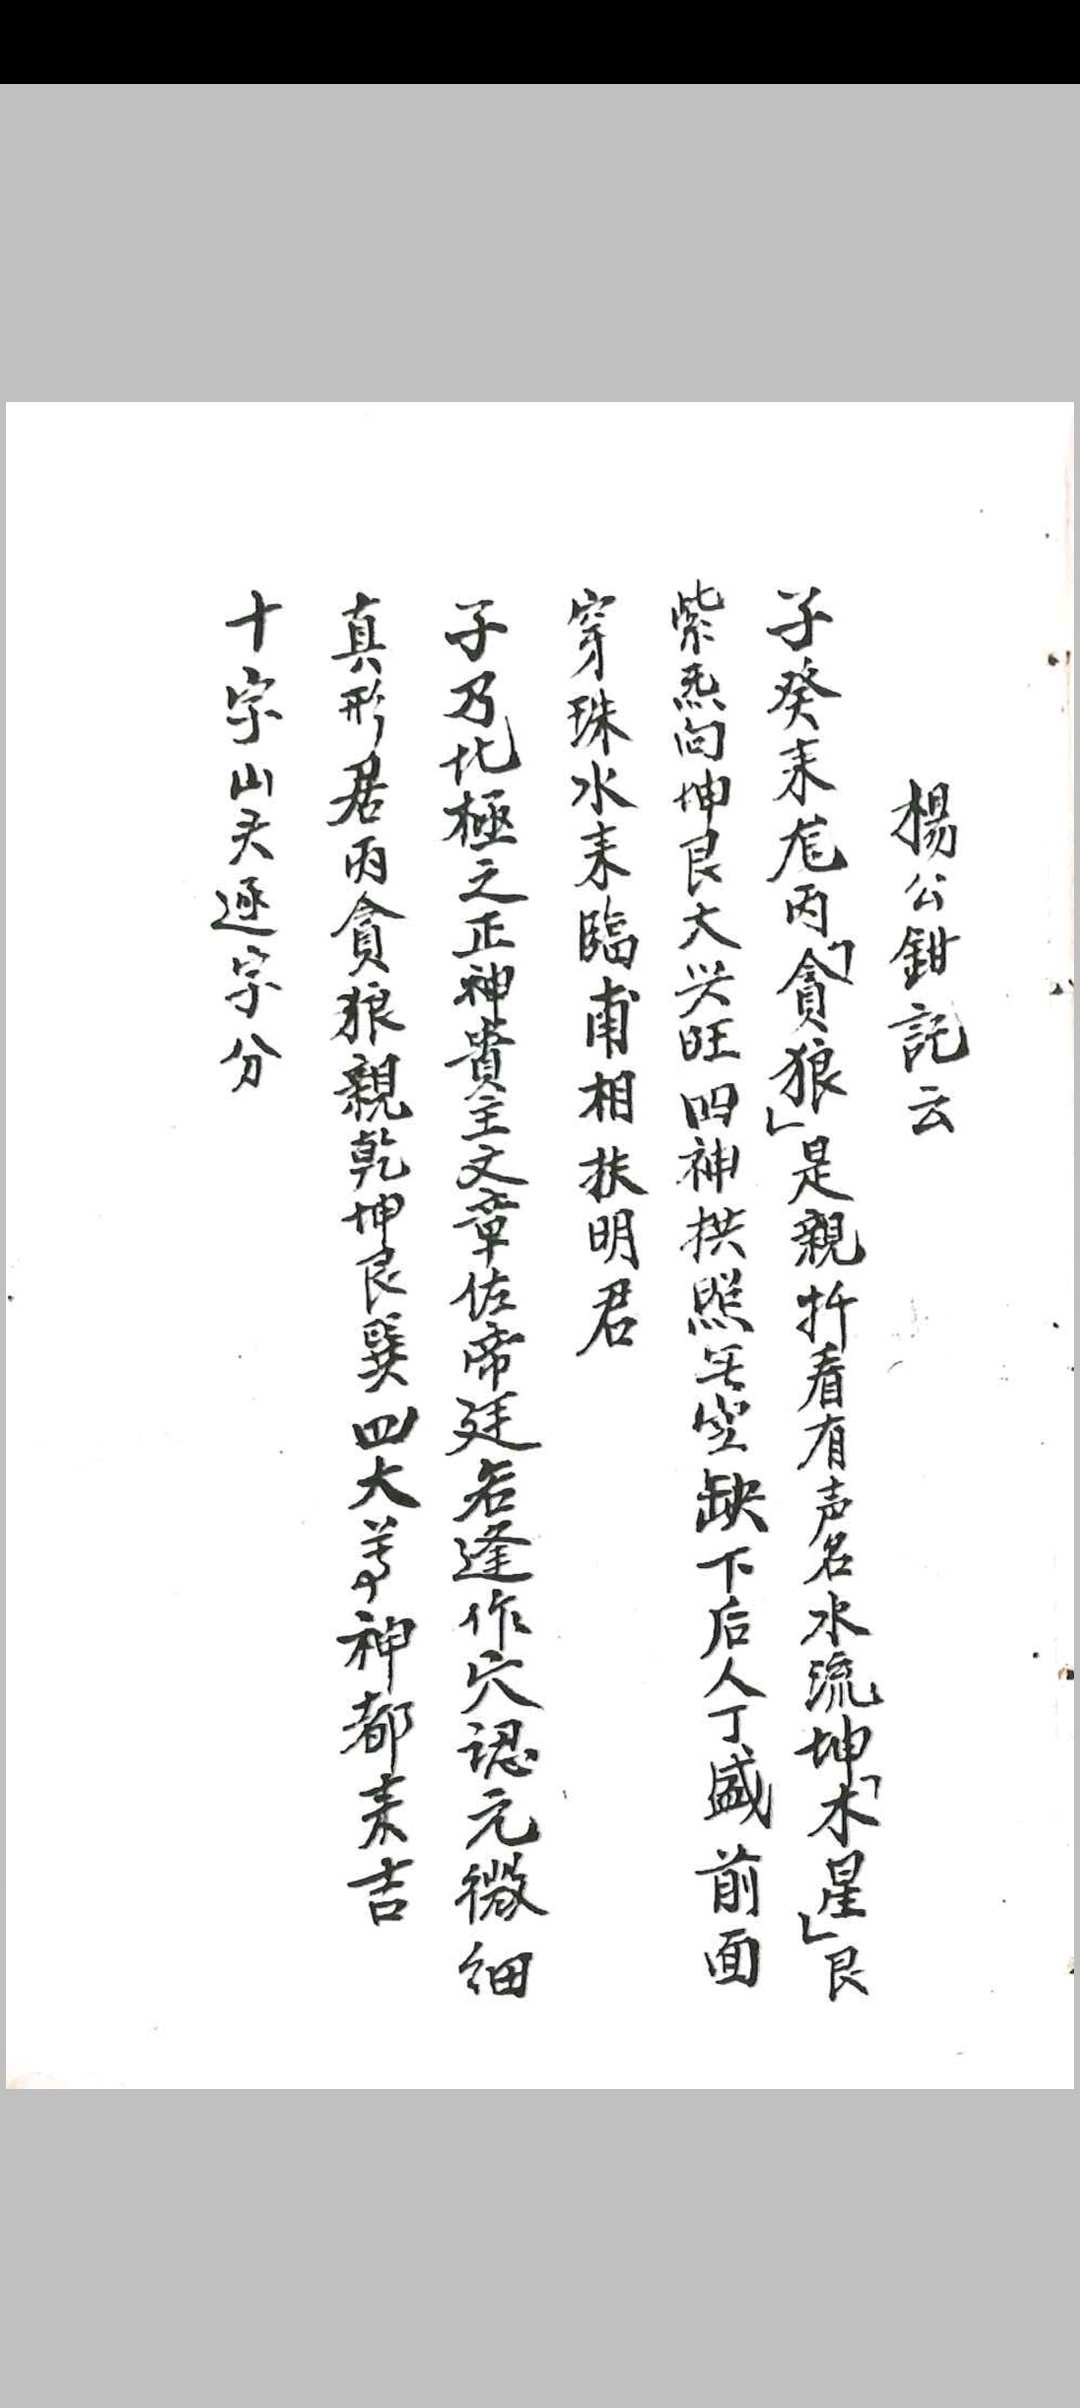 楊公鉗記云
子癸來龙丙「貪狼」是親扦看有声名水流坤「木星」艮
紫炁向坤艮大兴旺四神拱照無空缺下后人丁盛前面
穿珠水來臨甫相扶明君
子乃北極之正神貴主文章佐帝廷若逢作穴認元微細
真形居丙貪狼親乾坤艮巽四大尊神都來吉
十字山頭逐字分